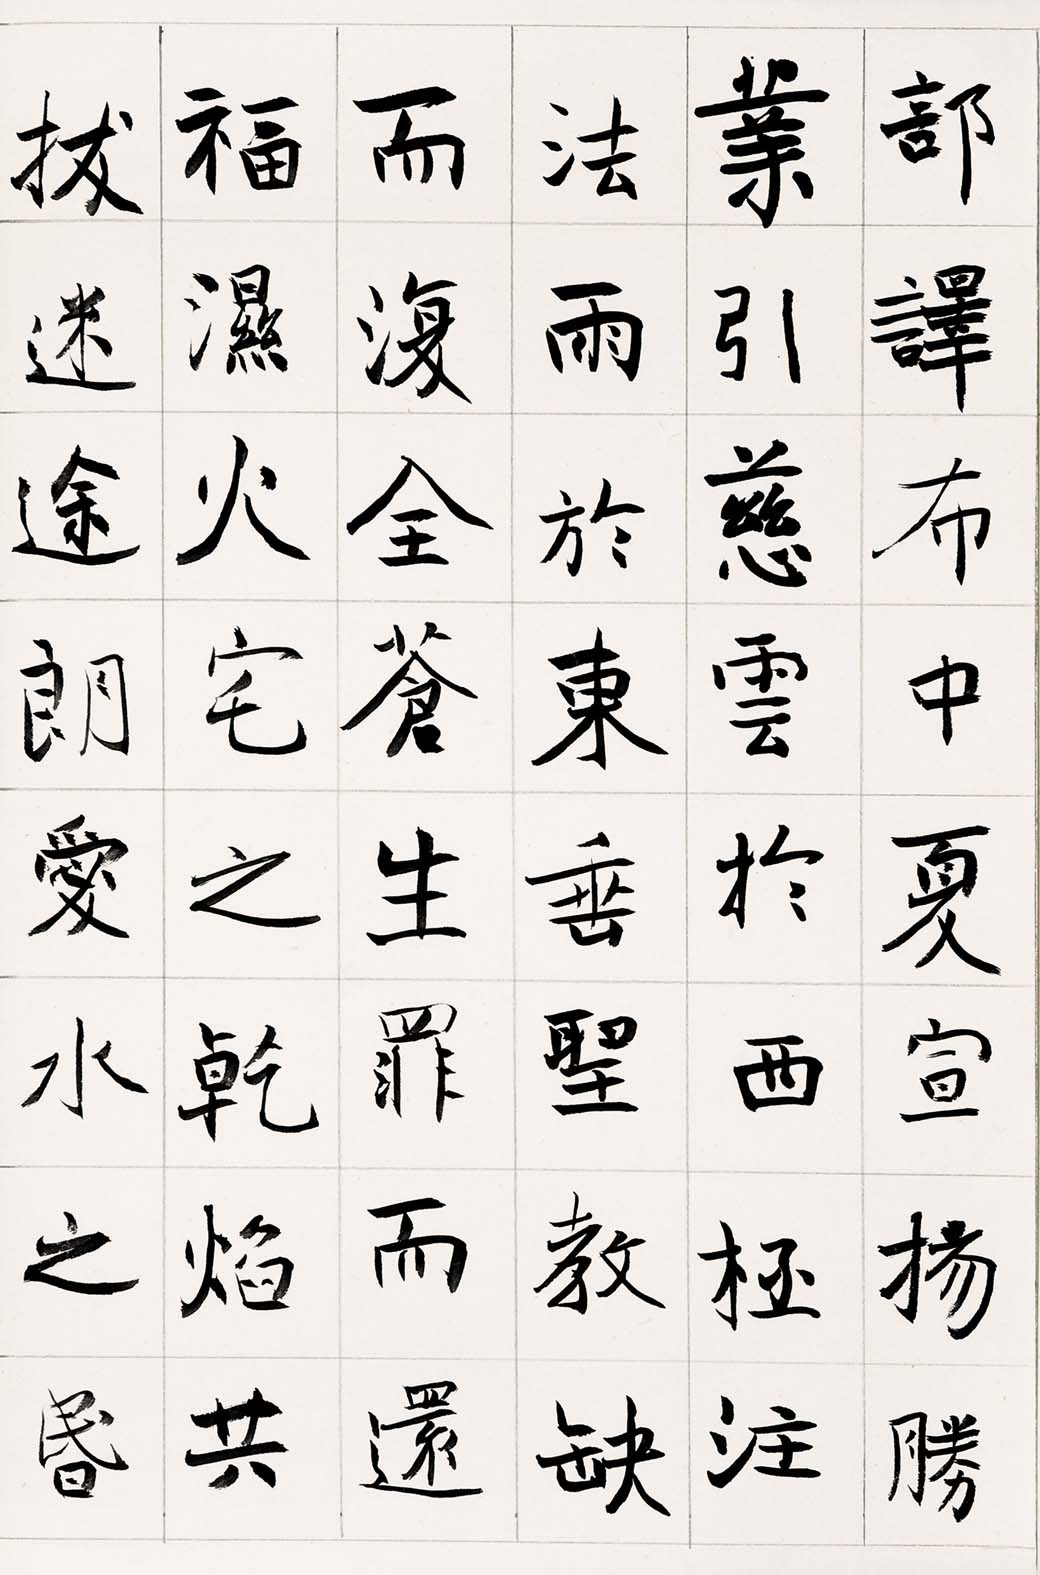 部譯布中夏宣揚勝
業引慈雲於西極注
法雨於東垂聖教缺
而復全蒼生罪而還
福濕火宅之乾焰共
拔迷途朗愛水之昬